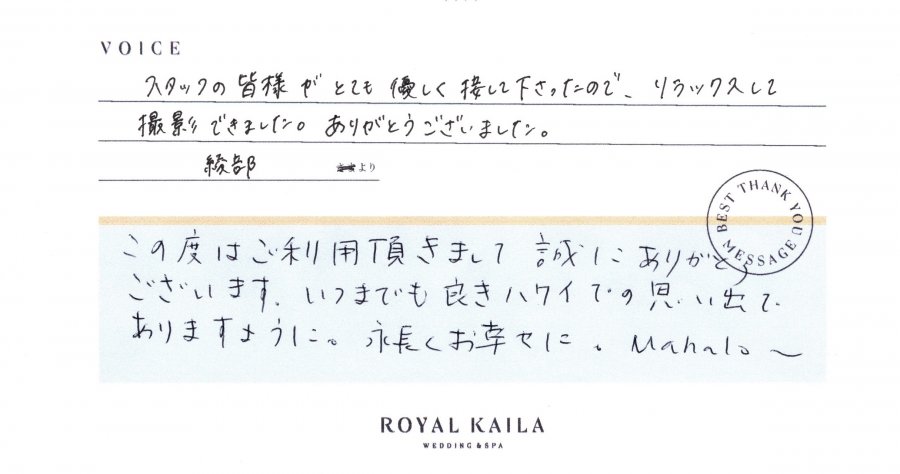 VOICE
スタッフの皆様がとても優しく接して下さったので、リラックスして
撮影できました。ありがとうございました。
綾部 より
BEST THANK YOU MESSAGE
この度はご利用頂きまして誠にありがとう
ございます。いつまでも良きハワイでの思い出で
ありますように。末長くお幸せに。Mahalo~
ROYAL KAILA
WEDDING & SPA